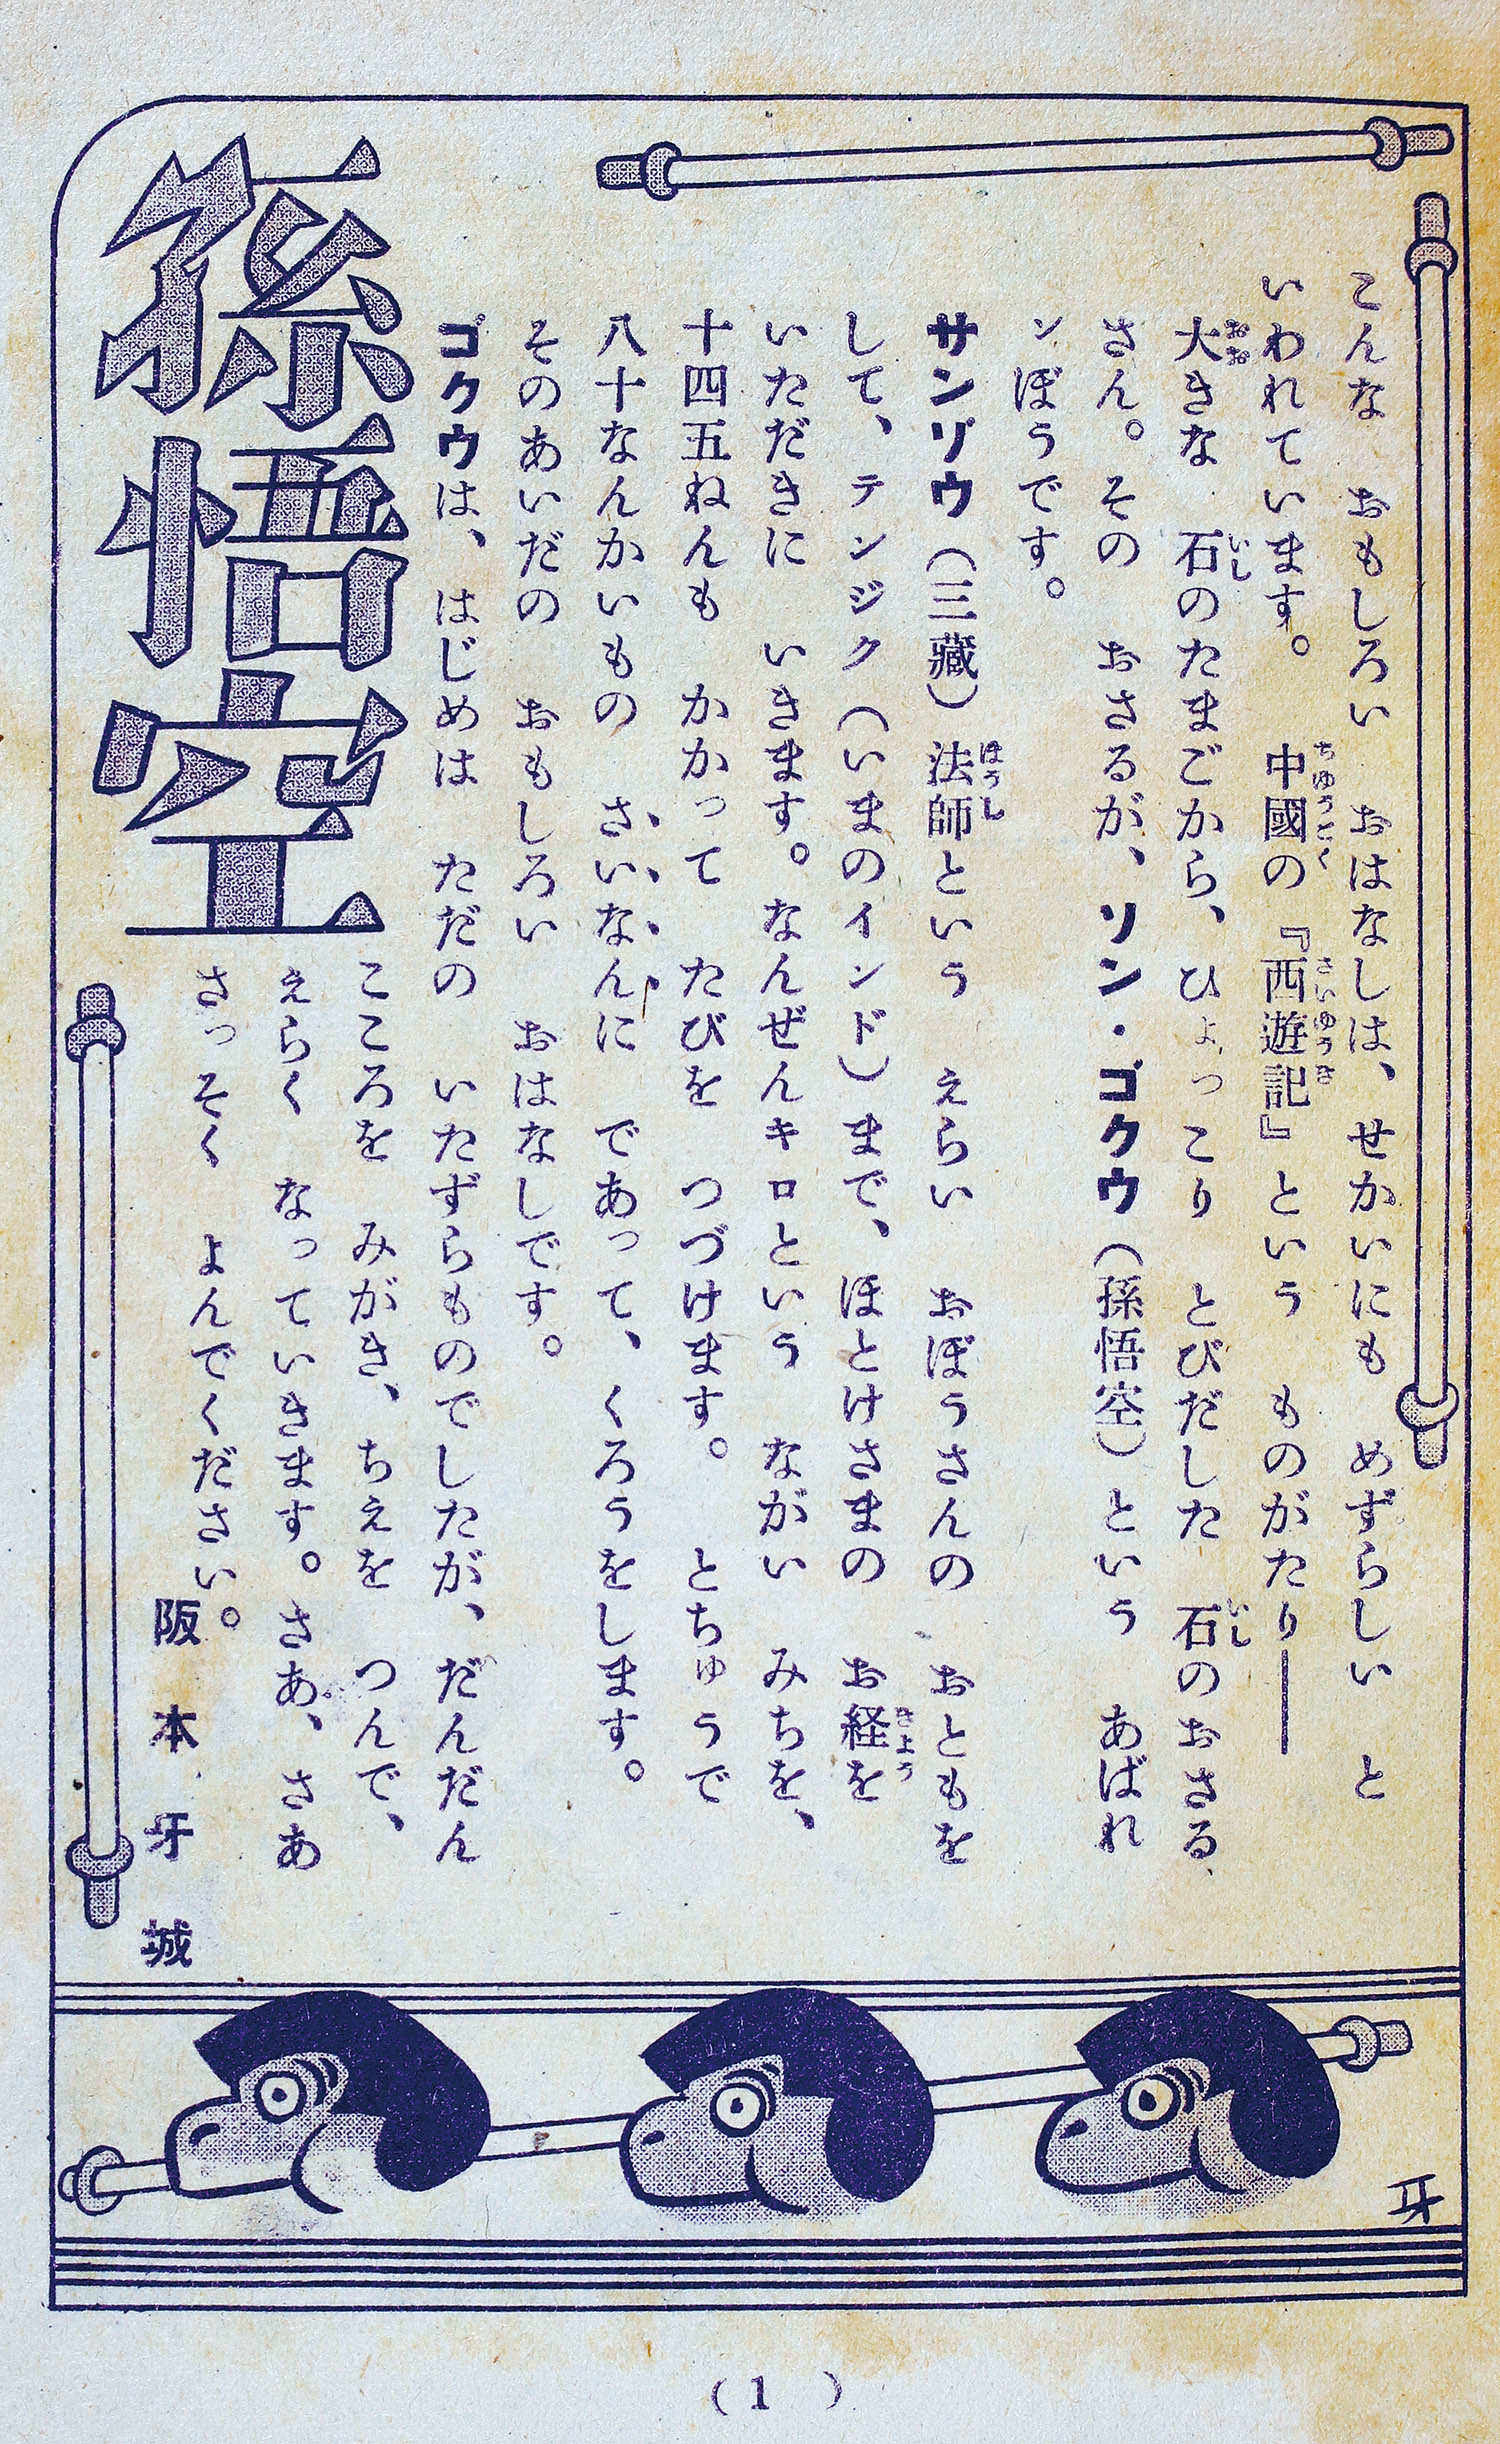 こんな　おもしろい　おはなしは、せかいにも　めずらしい　と
いわれています。　中國の『西遊記』という　ものがたり――
大きな　石のたまごから、ひょっこり　とびだした　石のおさる
さん。その　おさるが、ソン・ゴクウ（孫悟空）という　あばれ
ンぼうです。
サンゾウ（三藏）法師という　えらい　おぼうさんの　おともを
して、テンジク（いまのインド）まで、ほとけさまの　お経を
いただきに　いきます。なんぜんキロという　ながい　みちを、
十四五ねんも　かかって　たびを　つづけます。　とちゅうで
八十なんかいもの　さいなんに　であって、くろうをします。
そのあいだの　おもしろい　おはなしです。
ゴクウは、はじめは　ただの　いたずらものでしたが、だんだん
こころを　みがき、ちえを　つんで、
えらく　なっていきます。さあ、さあ
さっそく　よんでください。
阪本牙城
孫悟空
牙
(1)